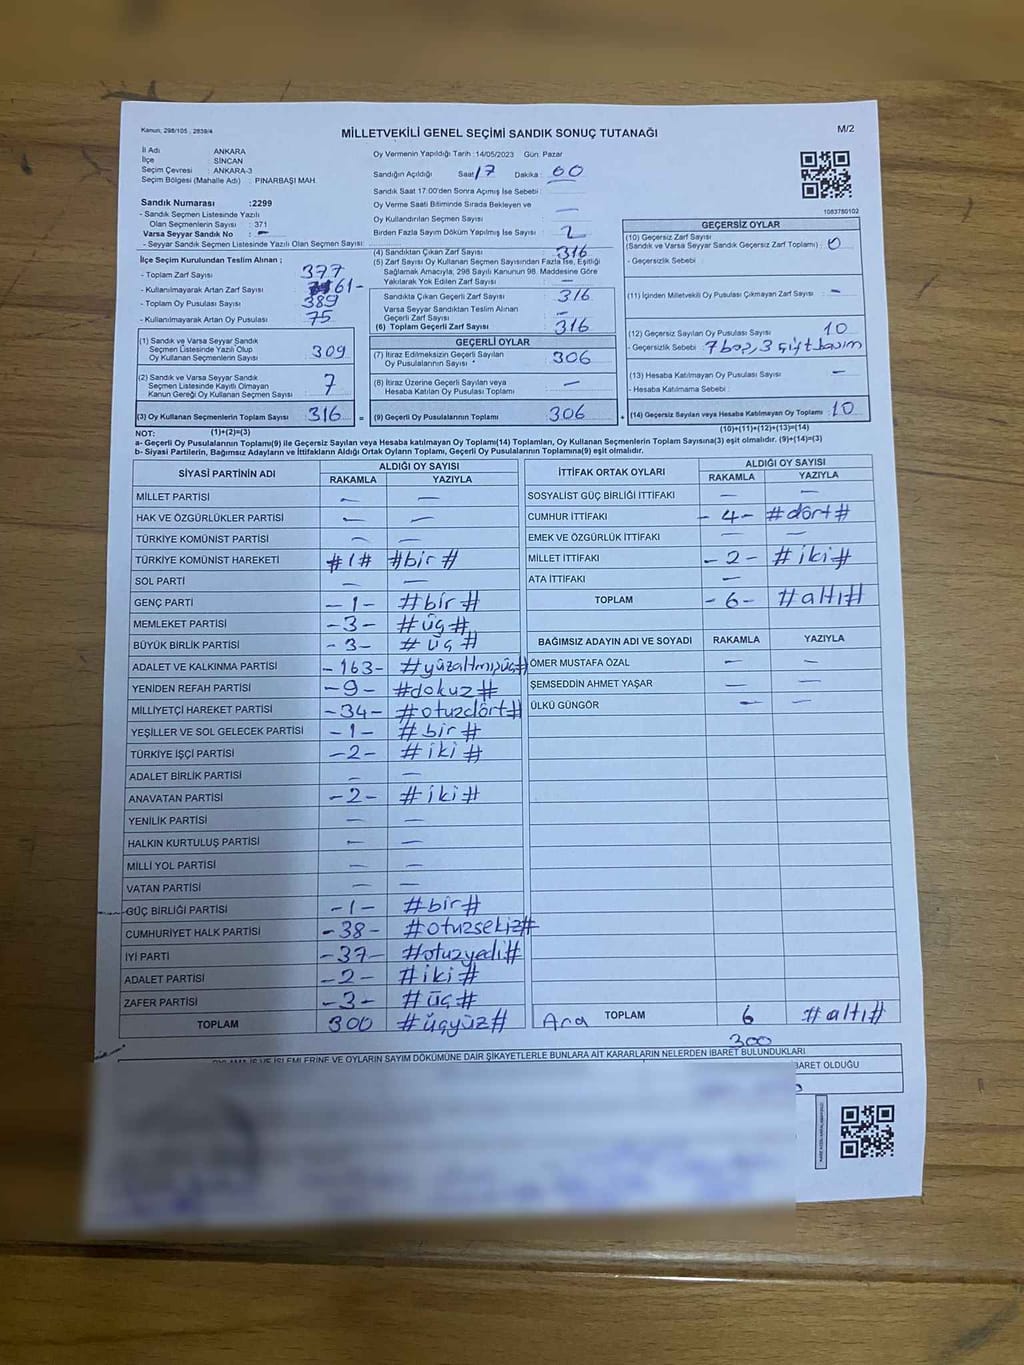 Kanun, 298/105 , 2839/4
MİLLETVEKİLİ GENEL SEÇİMİ SANDIK SONUÇ TUTANAĞI
M/2
İl Adı : ANKARA
İlçe : SİNCAN
Seçim Çevresi : ANKARA-3
Seçim Bölgesi (Mahalle Adı) : PINARBAŞI MAH.
Oy Vermenin Yapıldığı Tarih : 14/05/2023 Gün: Pazar
Sandığın Açıldığı Saat: 17 Dakika : 00
Sandık Saat 17:00'den Sonra Açımış İse Sebebi :
Oy Verme Saati Bitiminde Sırada Bekleyen ve
Oy Kullandırılan Seçmen Sayısı : —
Birden Fazla Sayım Döküm Yapılmış İse Sayısı : 2
1083780102
Sandık Numarası : 2299
- Sandık Seçmen Listesinde Yazılı
Olan Seçmenlerin Sayısı : 371
Varsa Seyyar Sandık No : —
- Seyyar Sandık Seçmen Listesinde Yazılı Olan Seçmen Sayısı:
İlçe Seçim Kurulundan Teslim Alınan ;
- Toplam Zarf Sayısı : 377
- Kullanılmayarak Artan Zarf Sayısı : 61-
- Toplam Oy Pusulası Sayısı : 389
- Kullanılmayarak Artan Oy Pusulası : 75
(1) Sandık ve Varsa Seyyar Sandık
Seçmen Listesinde Yazılı Olup
Oy Kullanan Seçmenlerin Sayısı : 309
(2) Sandık ve Varsa Seyyar Sandık
Seçmen Listesinde Kayıtlı Olmayan
Kanun Gereği Oy Kullanan Seçmen Sayısı : 7
(3) Oy Kullanan Seçmenlerin Toplam Sayısı : 316
(1)+(2)=(3)
(4) Sandıktan Çıkan Zarf Sayısı : 316
(5) Zarf Sayısı Oy Kullanan Seçmen Sayısından Fazla İse, Eşitliği
Sağlamak Amacıyla, 298 Sayılı Kanunun 98. Maddesine Göre
Yakılarak Yok Edilen Zarf Sayısı : —
Sandıkta Çıkan Geçerli Zarf Sayısı : 316
Varsa Seyyar Sandıktan Teslim Alınan
Geçerli Zarf Sayısı : —
(6) Toplam Geçerli Zarf Sayısı : 316
GEÇERLİ OYLAR
(7) İtiraz Edilmeksizin Geçerli Sayılan
Oy Pusulalarının Sayısı : 306
(8) İtiraz Üzerine Geçerli Sayılan veya
Hesaba Katılan Oy Pusulası Toplamı : —
= (9) Geçerli Oy Pusulalarının Toplamı : 306
GEÇERSİZ OYLAR
(10) Geçersiz Zarf Sayısı
(Sandık ve Varsa Seyyar Sandık Geçersiz Zarf Toplamı) : 0
- Geçersizlik Sebebi :
(11) İçinden Milletvekili Oy Pusulası Çıkmayan Zarf Sayısı : —
(12) Geçersiz Sayılan Oy Pusulası Sayısı : 10
- Geçersizlik Sebebi : 7 boş, 3 çift basım
(13) Hesaba Katılmayan Oy Pusulası Sayısı : —
- Hesaba Katılmama Sebebi :
+ (14) Geçersiz Sayılan veya Hesaba Katılmayan Oy Toplamı : 10
(10)+(11)+(12)+(13)=(14)
NOT:
a- Geçerli Oy Pusulalarının Toplamı(9) ile Geçersiz Sayılan veya Hesaba katılmayan Oy Toplamı(14) Toplamları, Oy Kullanan Seçmenlerin Toplam Sayısına(3) eşit olmalıdır. (9)+(14)=(3)
b- Siyasi Partilerin, Bağımsız Adayların ve İttifakların Aldığı Ortak Oyların Toplamı, Geçerli Oy Pusulalarının Toplamına(9) eşit olmalıdır.
SİYASİ PARTİNİN ADI ALDIĞI OY SAYISI
RAKAMLA YAZIYLA
MİLLET PARTİSİ — —
HAK VE ÖZGÜRLÜKLER PARTİSİ — —
TÜRKİYE KOMÜNİST PARTİSİ — —
TÜRKİYE KOMÜNİST HAREKETİ #1# #bir#
SOL PARTİ — —
GENÇ PARTİ -1- #bir#
MEMLEKET PARTİSİ -3- #üç#
BÜYÜK BİRLİK PARTİSİ -3- #üç#
ADALET VE KALKINMA PARTİSİ -163- #yüzaltmışüç#
YENİDEN REFAH PARTİSİ -9- #dokuz#
MİLLİYETÇİ HAREKET PARTİSİ -34- #otuzdört#
YEŞİLLER VE SOL GELECEK PARTİSİ -1- #bir#
TÜRKİYE İŞÇİ PARTİSİ -2- #iki#
ADALET BİRLİK PARTİSİ — —
ANAVATAN PARTİSİ -2- #iki#
YENİLİK PARTİSİ — —
HALKIN KURTULUŞ PARTİSİ — —
MİLLİ YOL PARTİSİ — —
VATAN PARTİSİ — —
GÜÇ BİRLİĞİ PARTİSİ -1- #bir#
CUMHURİYET HALK PARTİSİ -38- #otuzsekiz#
İYİ PARTİ -37- #otuzyedi#
ADALET PARTİSİ -2- #iki#
ZAFER PARTİSİ -3- #üç#
TOPLAM 300 #üçyüz#
İTTİFAK ORTAK OYLARI ALDIĞI OY SAYISI
RAKAMLA YAZIYLA
SOSYALİST GÜÇ BİRLİĞİ İTTİFAKI — —
CUMHUR İTTİFAKI -4- #dört#
EMEK VE ÖZGÜRLÜK İTTİFAKI — —
MİLLET İTTİFAKI -2- #iki#
ATA İTTİFAKI —
TOPLAM -6- #altı#
BAĞIMSIZ ADAYIN ADI VE SOYADI RAKAMLA YAZIYLA
ÖMER MUSTAFA ÖZAL — —
ŞEMSEDDİN AHMET YAŞAR — —
ÜLKÜ GÜNGÖR — —
Ara TOPLAM 6 #altı#
300
OYLAMA İŞ VE İŞLEMLERİNE VE OYLARIN SAYIM DÖKÜMÜNE DAİR ŞİKAYETLERLE BUNLARA AİT KARARLARIN NELERDEN İBARET BULUNDUKLARI
İBARET OLDUĞU